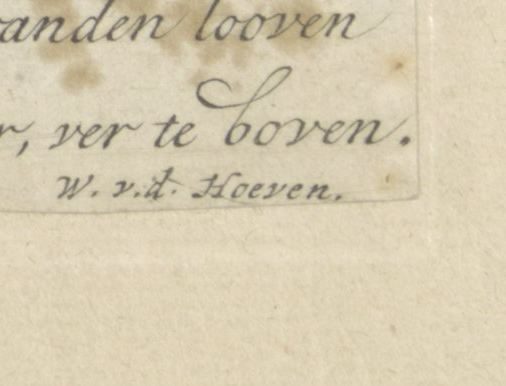 anden looven
r, ver te boven.
W. v.d. Hoeven.